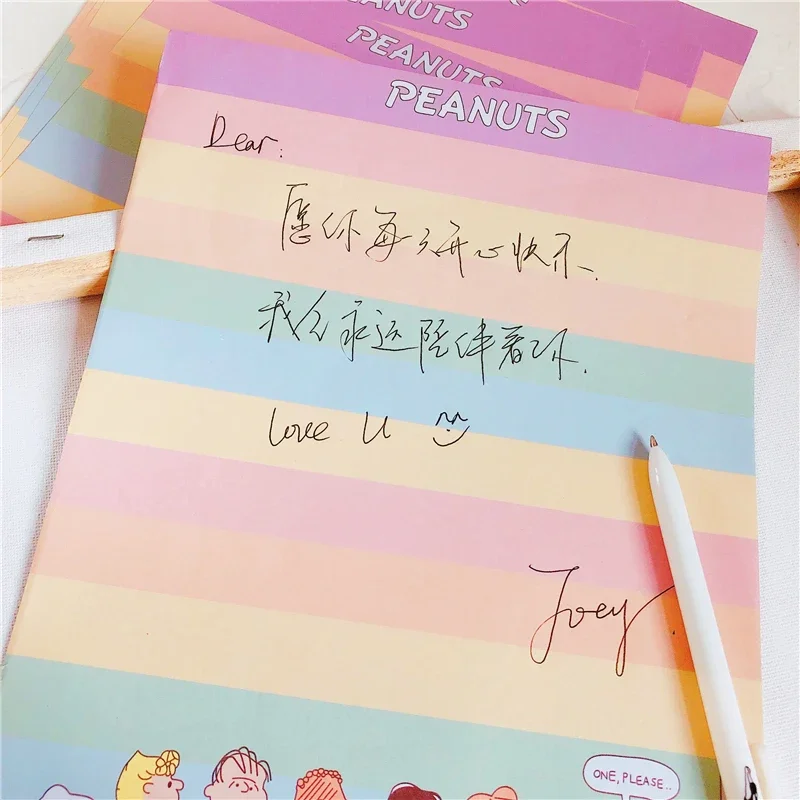 PEANUTS
PEANUTS
PEANUTS
Dear:
愿你每天开心快乐.
我会永远陪伴着你.
love U
Joey.
ONE, PLEASE..